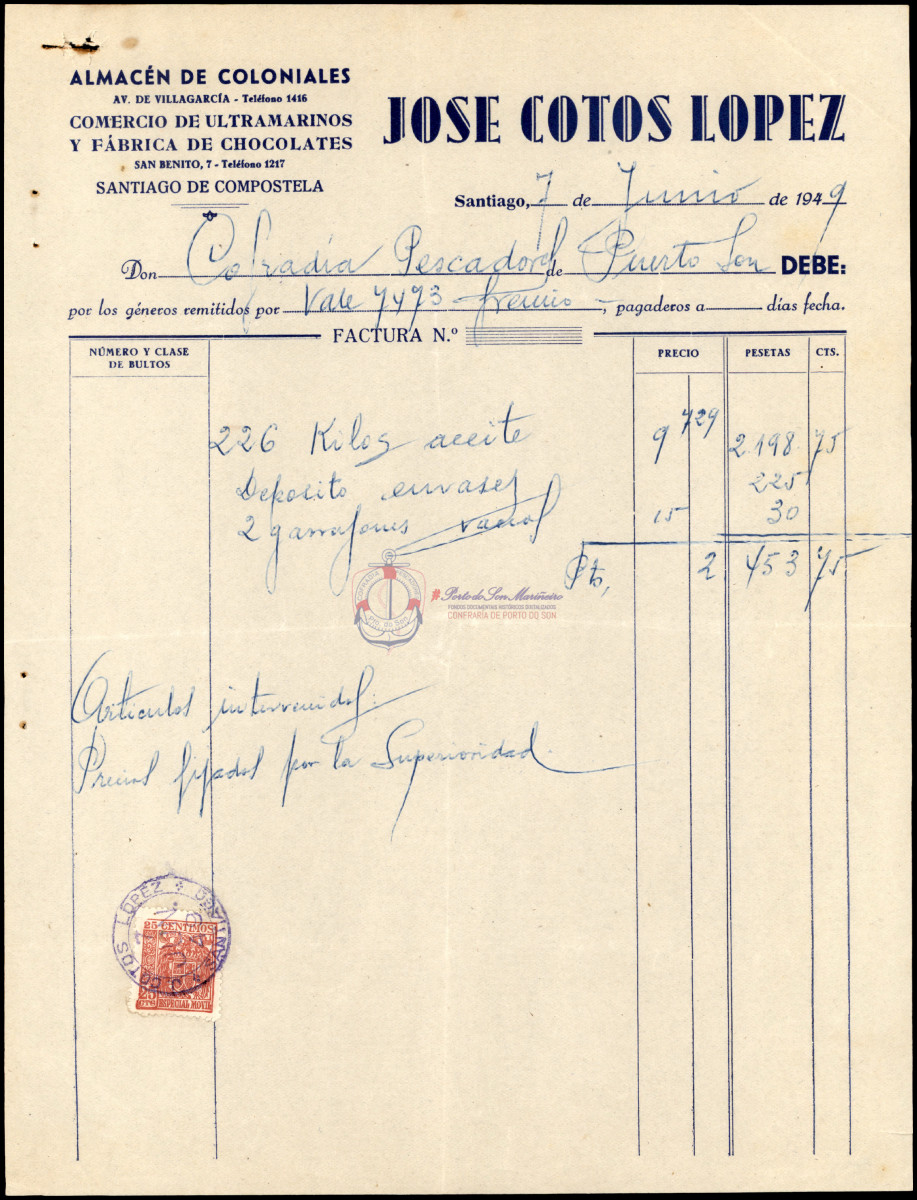 ALMACÉN DE COLONIALES
AV. DE VILLAGARCÍA - Teléfono 1416
COMERCIO DE ULTRAMARINOS
Y FÁBRICA DE CHOCOLATES
SAN BENITO, 7 - Teléfono 1217
SANTIAGO DE COMPOSTELA
JOSE COTOS LOPEZ
Santiago, 7 de Junio de 1949
Don Cofradía Pescadores de Puerto Son DEBE:
por los géneros remitidos por Vale 7473 , pagaderos a días fecha.
FACTURA N.º
NÚMERO Y CLASE DE BULTOS PRECIO PESETAS CTS.
226 Kilos aceite 9 729 2.198 75
Deposito envases 225
2 garrafones vacios 15 30
Pts, 2 453 75
#PortodoSonMariñeiro
FONDOS DOCUMENTAIS HISTÓRICOS DIXITALIZADOS
CONFRARÍA DE PORTO DO SON
Articulos intervenidos.
Precios fijados por la Superioridad.
J. COTOS LOPEZ
SANTIAGO
25 CENTIMOS
25 CTS
ESPECIAL MOVIL